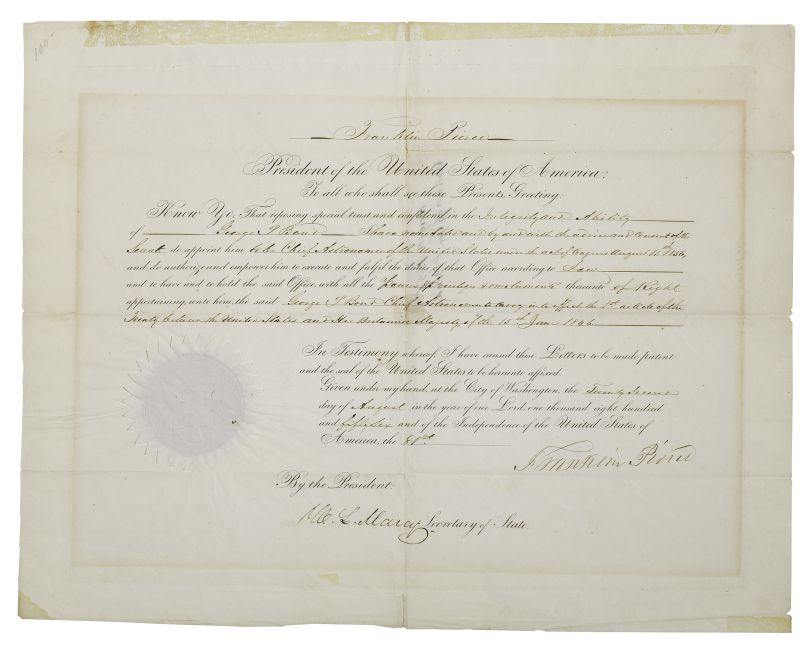 100
Franklin Pierce
President of the United States of America,
To all who shall see these Presents, Greeting:
Know Ye, That reposing special trust and confidence in the Integrity and Ability
of George P Bond I have nominated and by and with the advice and consent of the
Senate do appoint him to be Chief Astronomer of the United States under the act of Congress August 11th 1856,
and do authorize and empower him to execute and fulfil the duties of that Office according to Law
and to have and to hold the said Office, with all the Powers, Privileges & emoluments thereunto of Right
appertaining, unto him, the said George P Bond Chief Astronomer to carry into effect the 1st article of the
Treaty between the United States and Her Britannic Majesty of the 15th June 1846
In Testimony whereof, I have caused these Letters to be made patent
and the seal of the United States to be hereunto affixed.
Given under my hand, at the City of Washington, the Twenty Second
day of August in the year of our Lord, one thousand eight hundred
and fifty six and of the Independence of the United States of
America, the 81st.
Franklin Pierce
By the President.
W. L. Marcy Secretary of State.